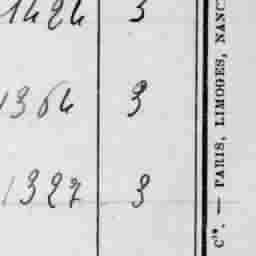 1424 3
1364 3
1327 3
Cie. — PARIS, LIMOGES, NANC